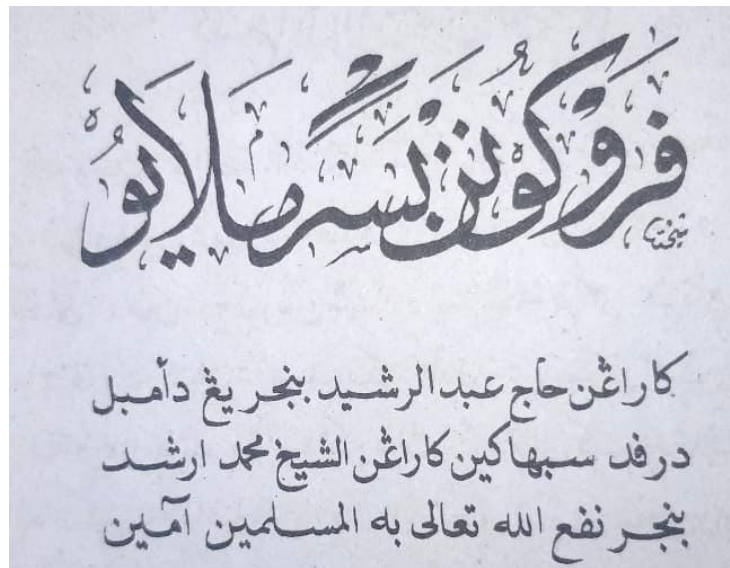 فَرُوكُونَن بَسَر مَلَايُو
كاراڠن حاج عبد الرشيد بنجر يڠ دأمبل
درفد سبهاكين كاراڠن الشيخ محمد ارشد
بنجر نفع الله تعالى به المسلمين آمين